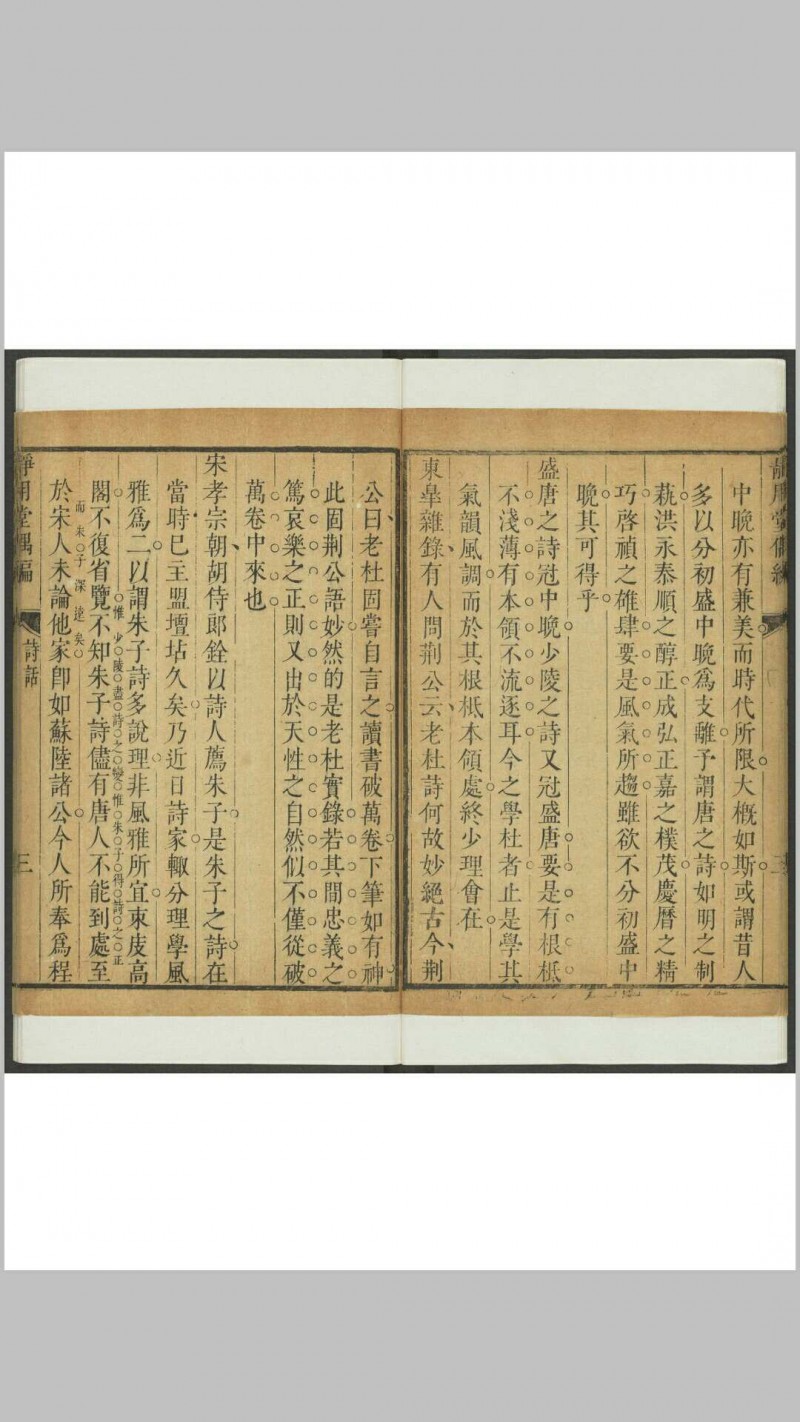 中晚亦有兼美而時代所限大概如斯或謂昔人
多以分初盛中晚爲支離予謂唐之詩如明之制
蓺洪永泰順之醇正成弘正嘉之樸茂慶曆之精
巧啓禎之雄肆要是風氣所趨雖欲不分初盛中
晚其可得乎
盛唐之詩冠中晚少陵之詩又冠盛唐要是有根柢
不淺薄有本領不流逐耳今之學杜者止是學其
氣韻風調而於其根柢本領處終少理會在
東臯雜錄有人問荆公云老杜詩何故妙絕古今荆
公曰老杜固嘗自言之讀書破萬卷下筆如有神
此固荆公語妙然的是老杜實錄若其間忠義之
篤哀樂之正則又由於天性之自然似不僅從破
萬卷中來也
宋孝宗朝胡侍郎銓以詩人薦朱子是朱子之詩在
當時巳主盟壇坫久矣乃近日詩家輙分理學風
雅爲二以謂朱子詩多說理非風雅所宜束庋高
閣不復省覽不知朱子詩儘有唐人不能到處至
惟少陵盡詩之變惟朱子得詩之正
於宋人未論他家卽如蘇陸諸公今人所奉爲程
靜用堂偶編
詩話
三